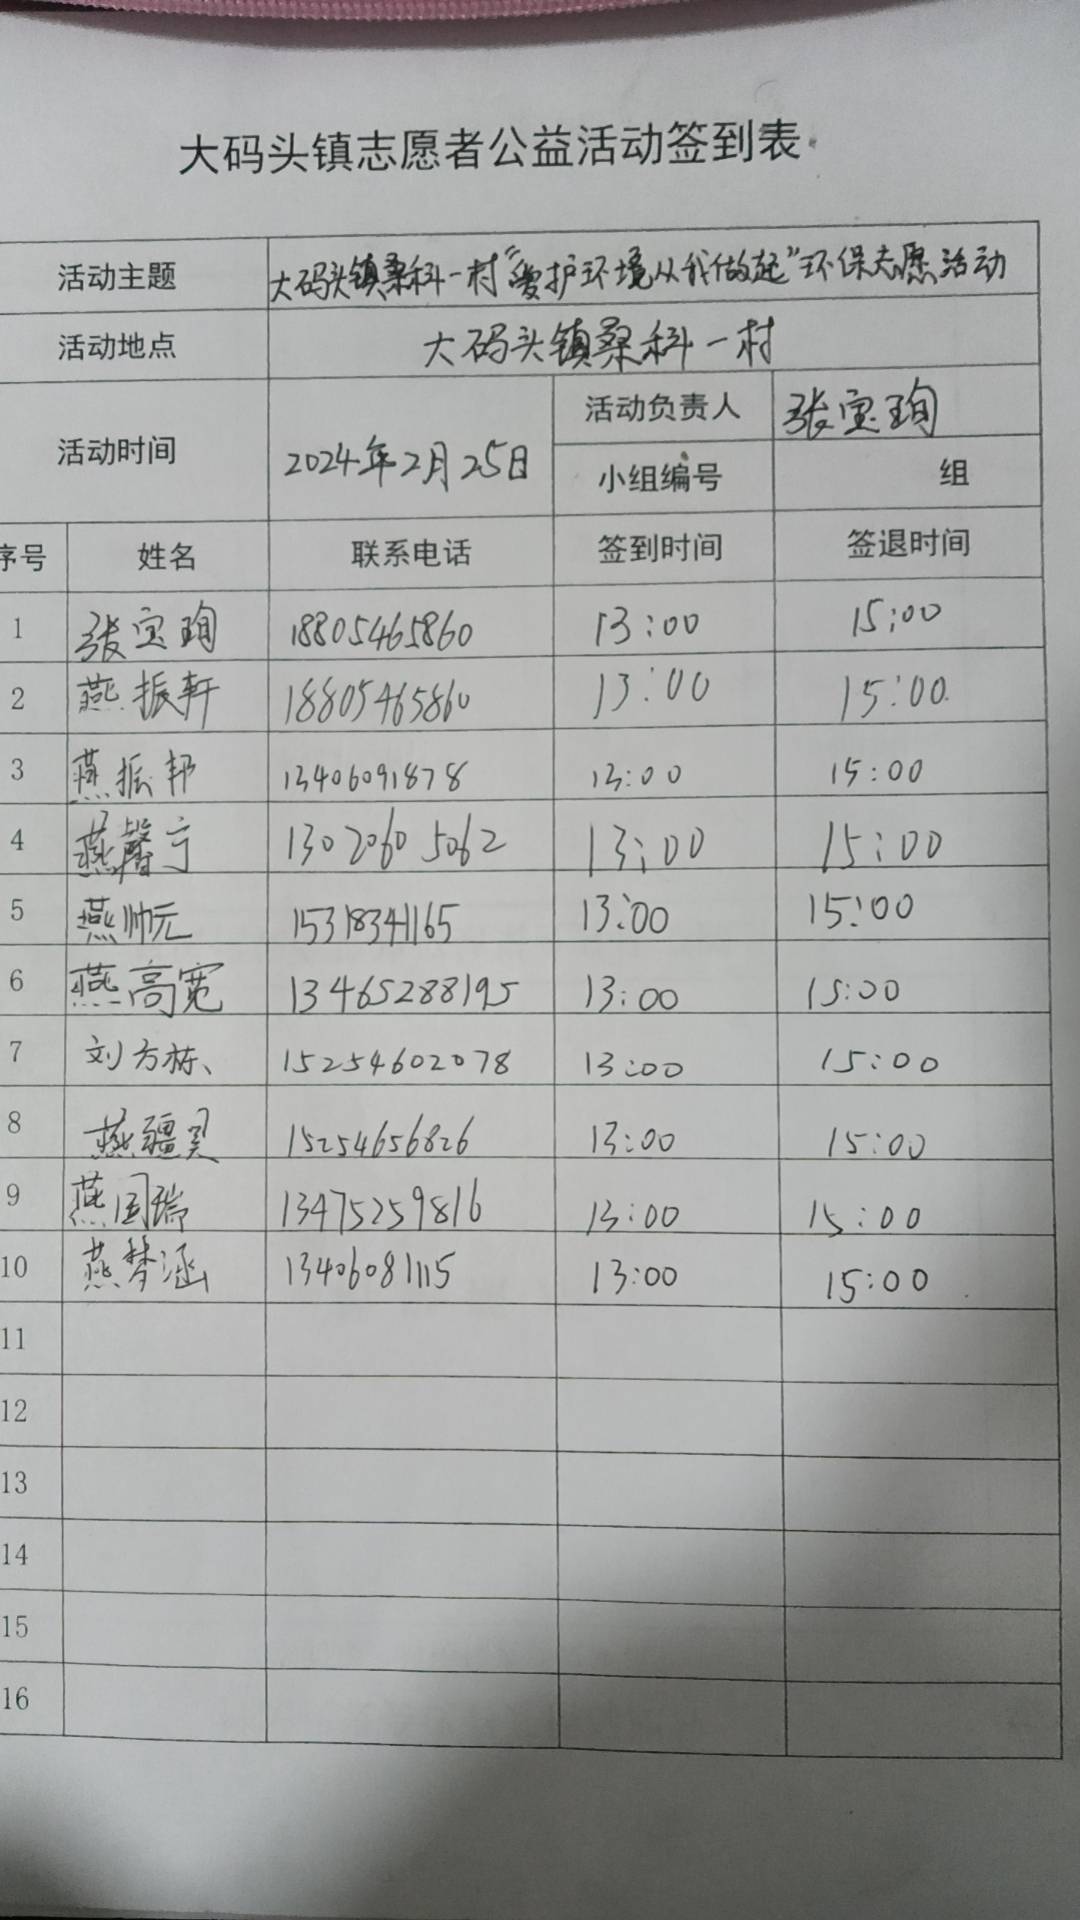 大码头镇志愿者公益活动签到表
活动主题 大码头镇桑科一村“爱护环境从我做起”环保志愿活动
活动地点 大码头镇桑科一村
活动时间 2024年2月25日 活动负责人 张宝珣
小组编号 组
序号 姓名 联系电话 签到时间 签退时间
1 张宝珣 18805465860 13:00 15:00
2 燕振轩 18805465860 13:00 15:00
3 燕振邦 13406091878 13:00 15:00
4 燕馨宁 13020605062 13:00 15:00
5 燕帅元 15318341165 13:00 15:00
6 燕高宽 13465288195 13:00 15:00
7 刘方栋、 15254602078 13:00 15:00
8 燕疆昊 15254656826 13:00 15:00
9 燕国瑞 13475259816 13:00 15:00
10 燕梦涵 13406081115 13:00 15:00
11
12
13
14
15
16